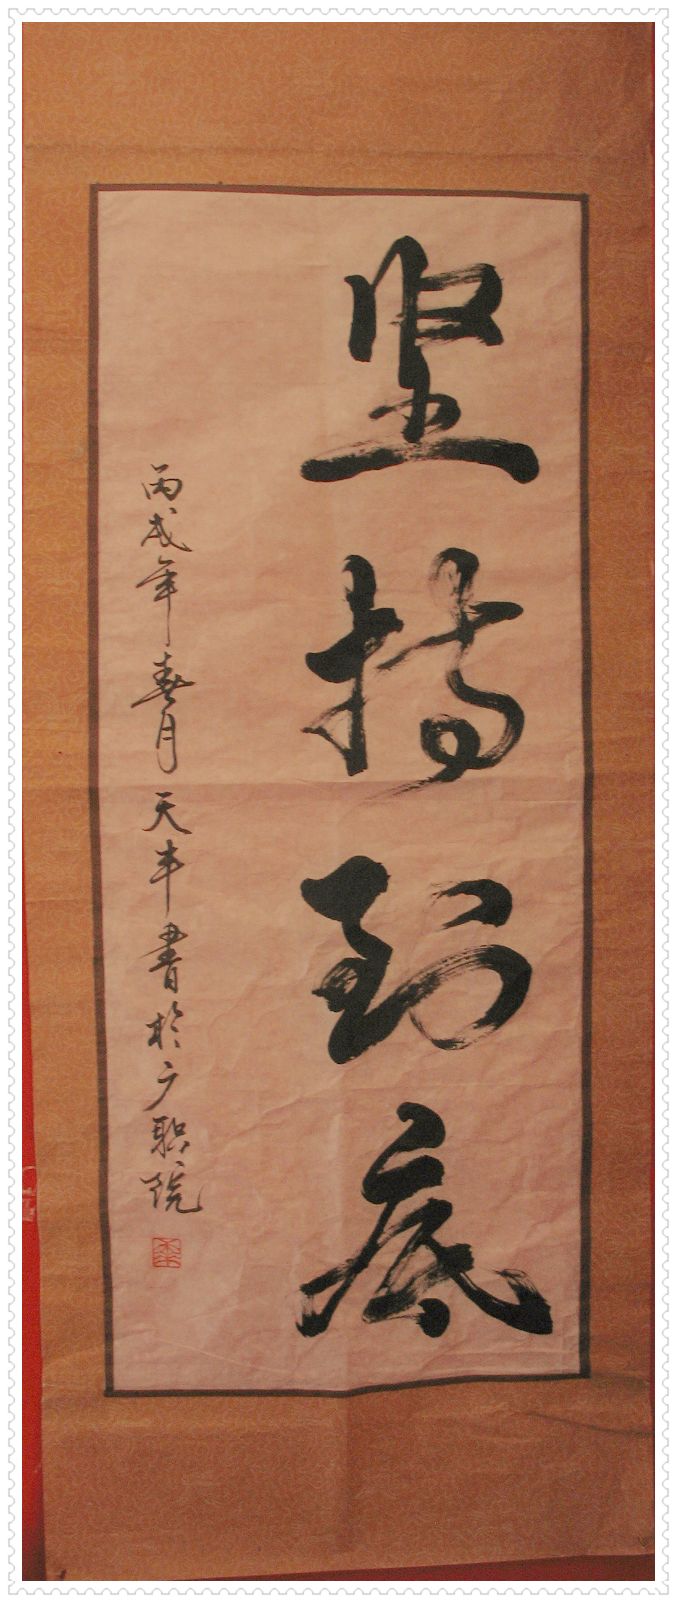 坚持到底
丙戌年春月天丰书於广职院